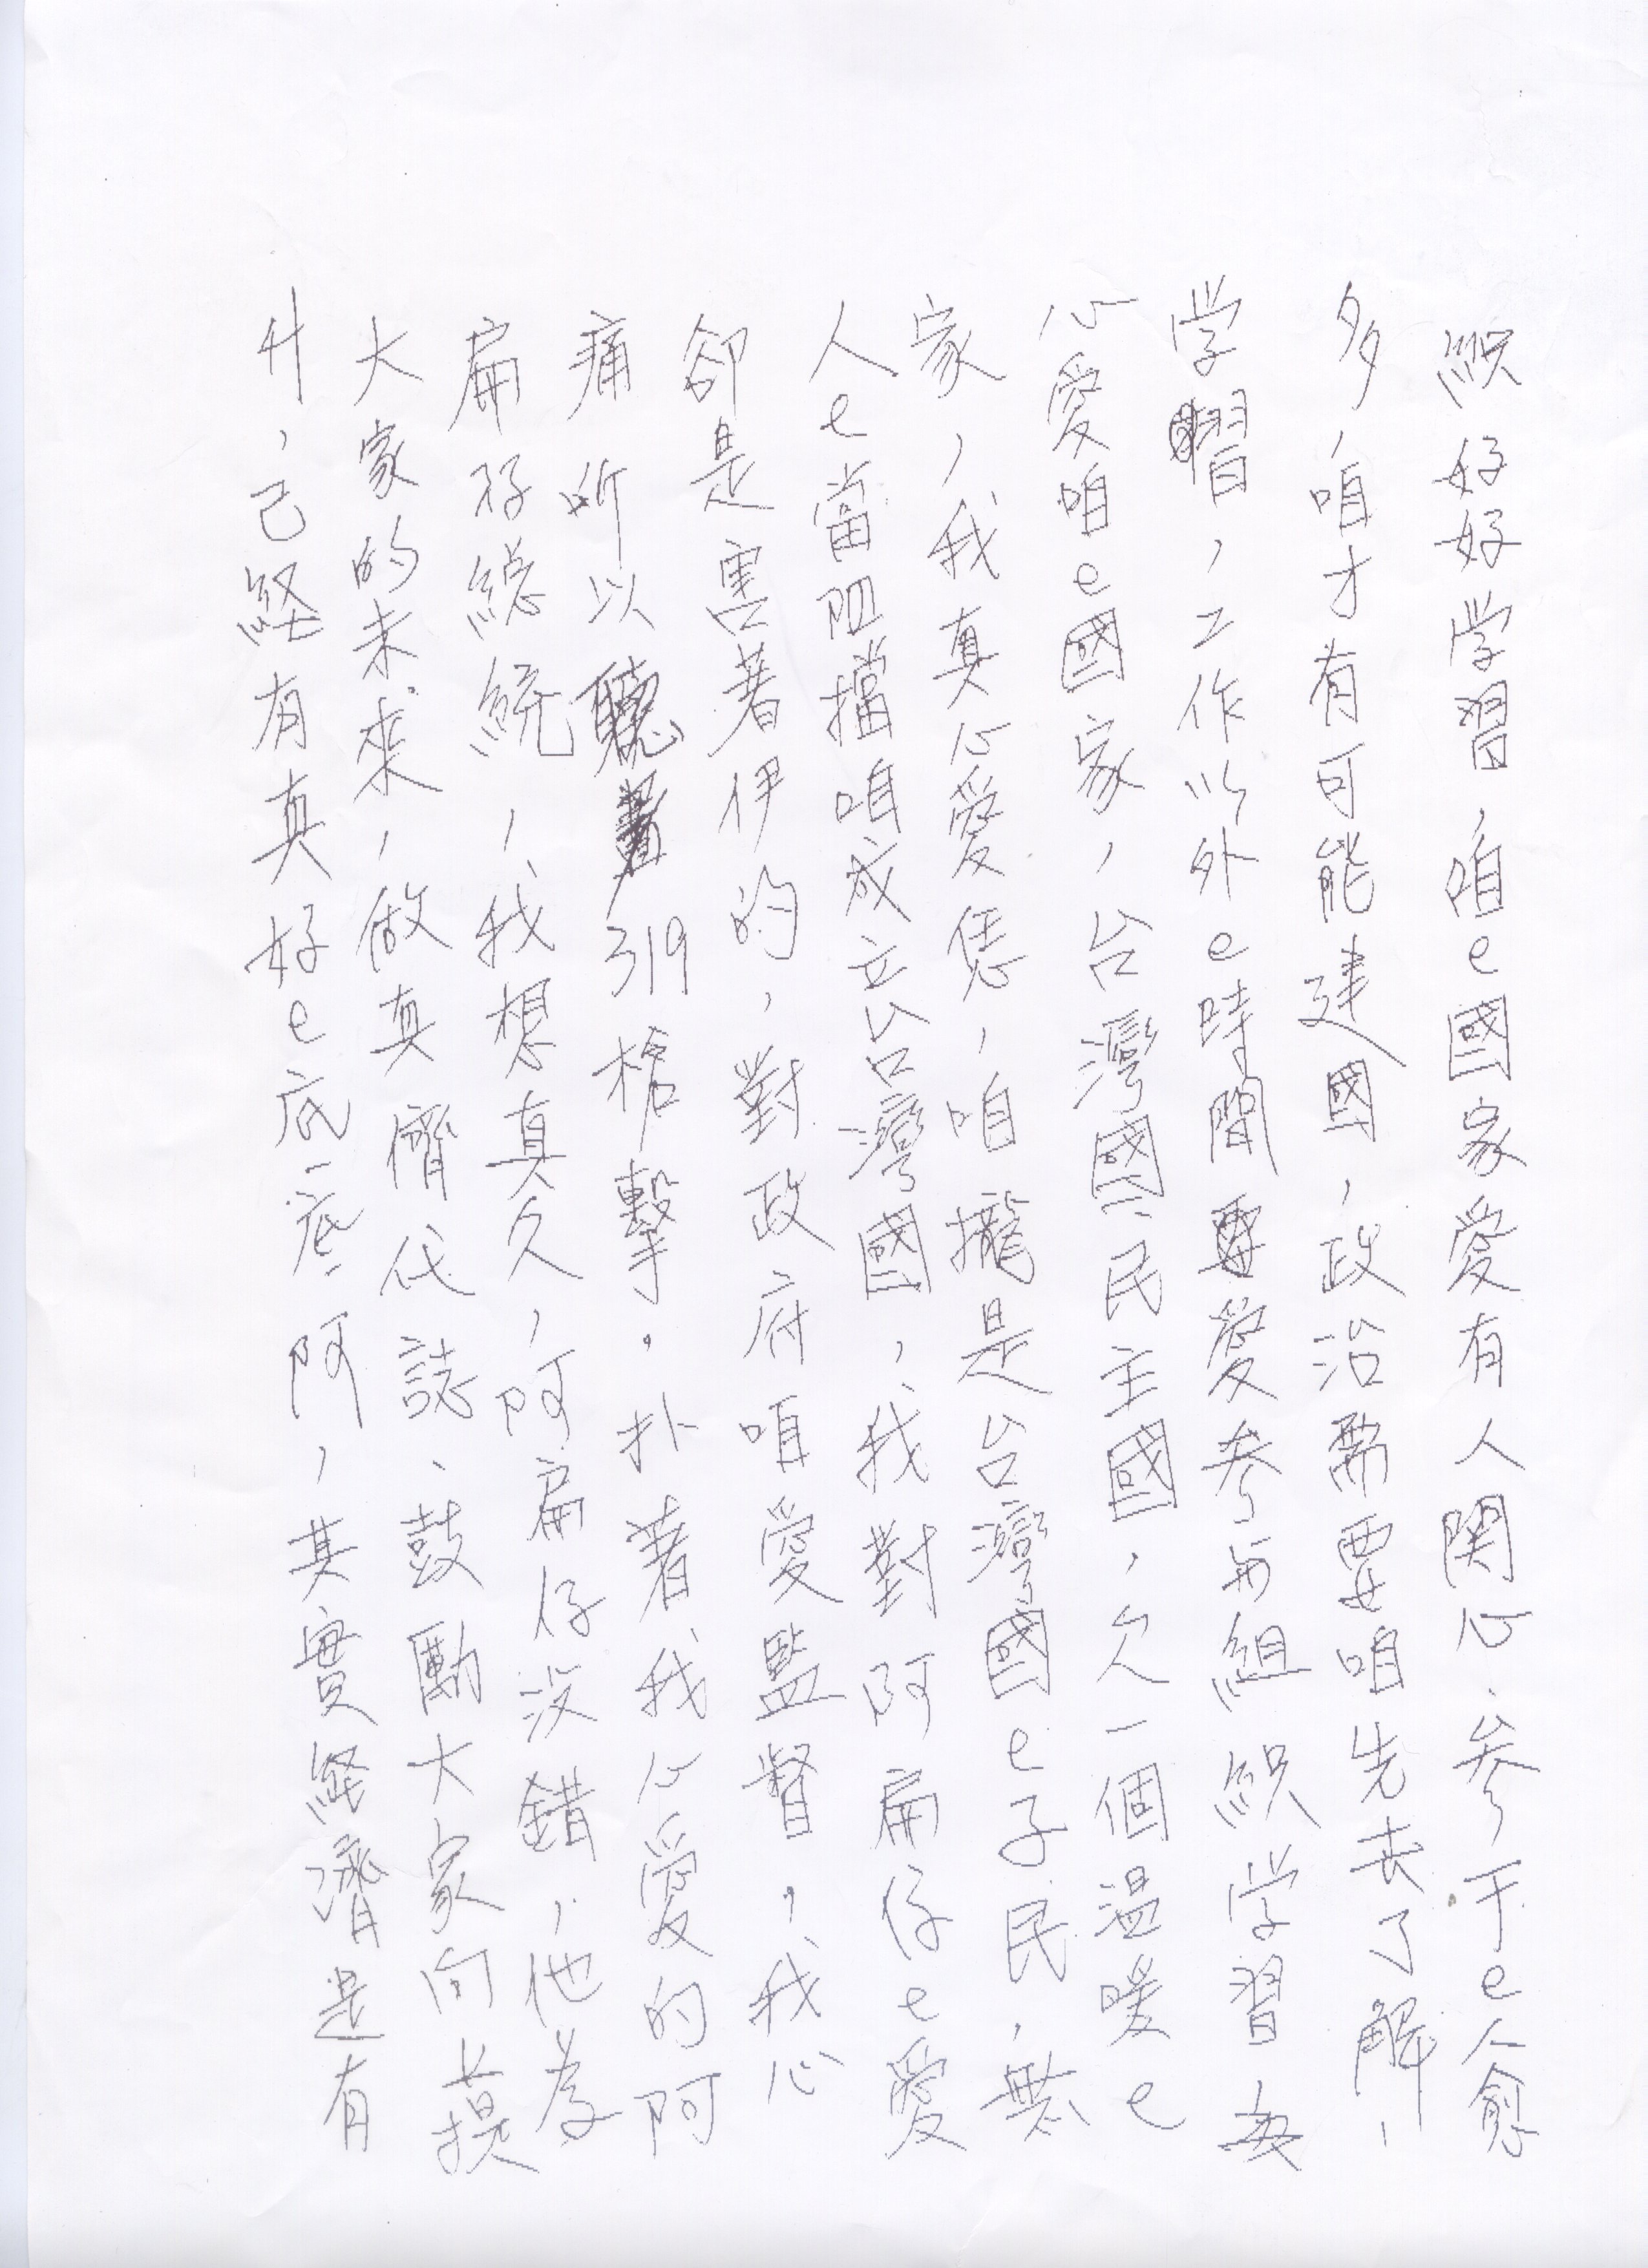 織好好学習，咱e國家愛有人関心、参于e人愈
多，咱才有可能建國，政治需要咱先去了解，
学習，工作以外e時間要愛参与組織学習，每
心愛咱e國家，台灣國民主國，欠一個温暖e
家，我真心愛恁，咱攏是台灣國e子民，無
人e當阻擋咱成立台灣國，我對阿扁仔e愛
卻是害著伊的，對政府咱愛監督，我心
痛所以聽 319槍擊。扑著我心愛的阿
扁仔總統，我想真久，阿扁仔没錯，他為
大家的未來，做真儕代誌、鼓勵大家向上提
升，已経有真好e底蒂阿，其實経濟是有